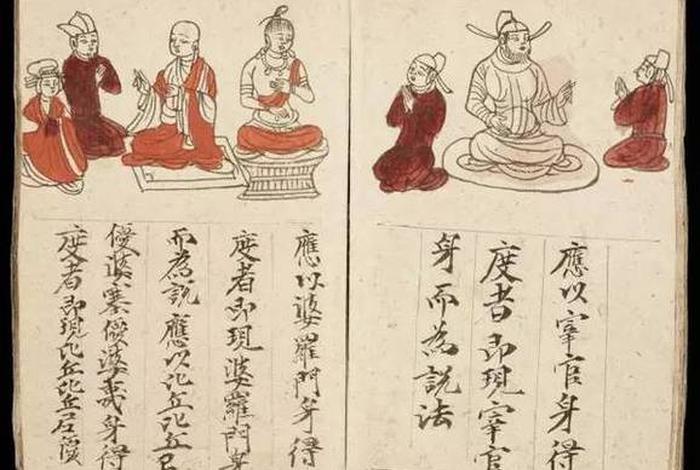 應以宰官身得
度者即現宰官
身而為說法
應以婆羅門身得
度者即現婆羅門身
而為說應以比丘比丘尼
優婆塞優婆夷身得
度者即現比丘比丘尼優